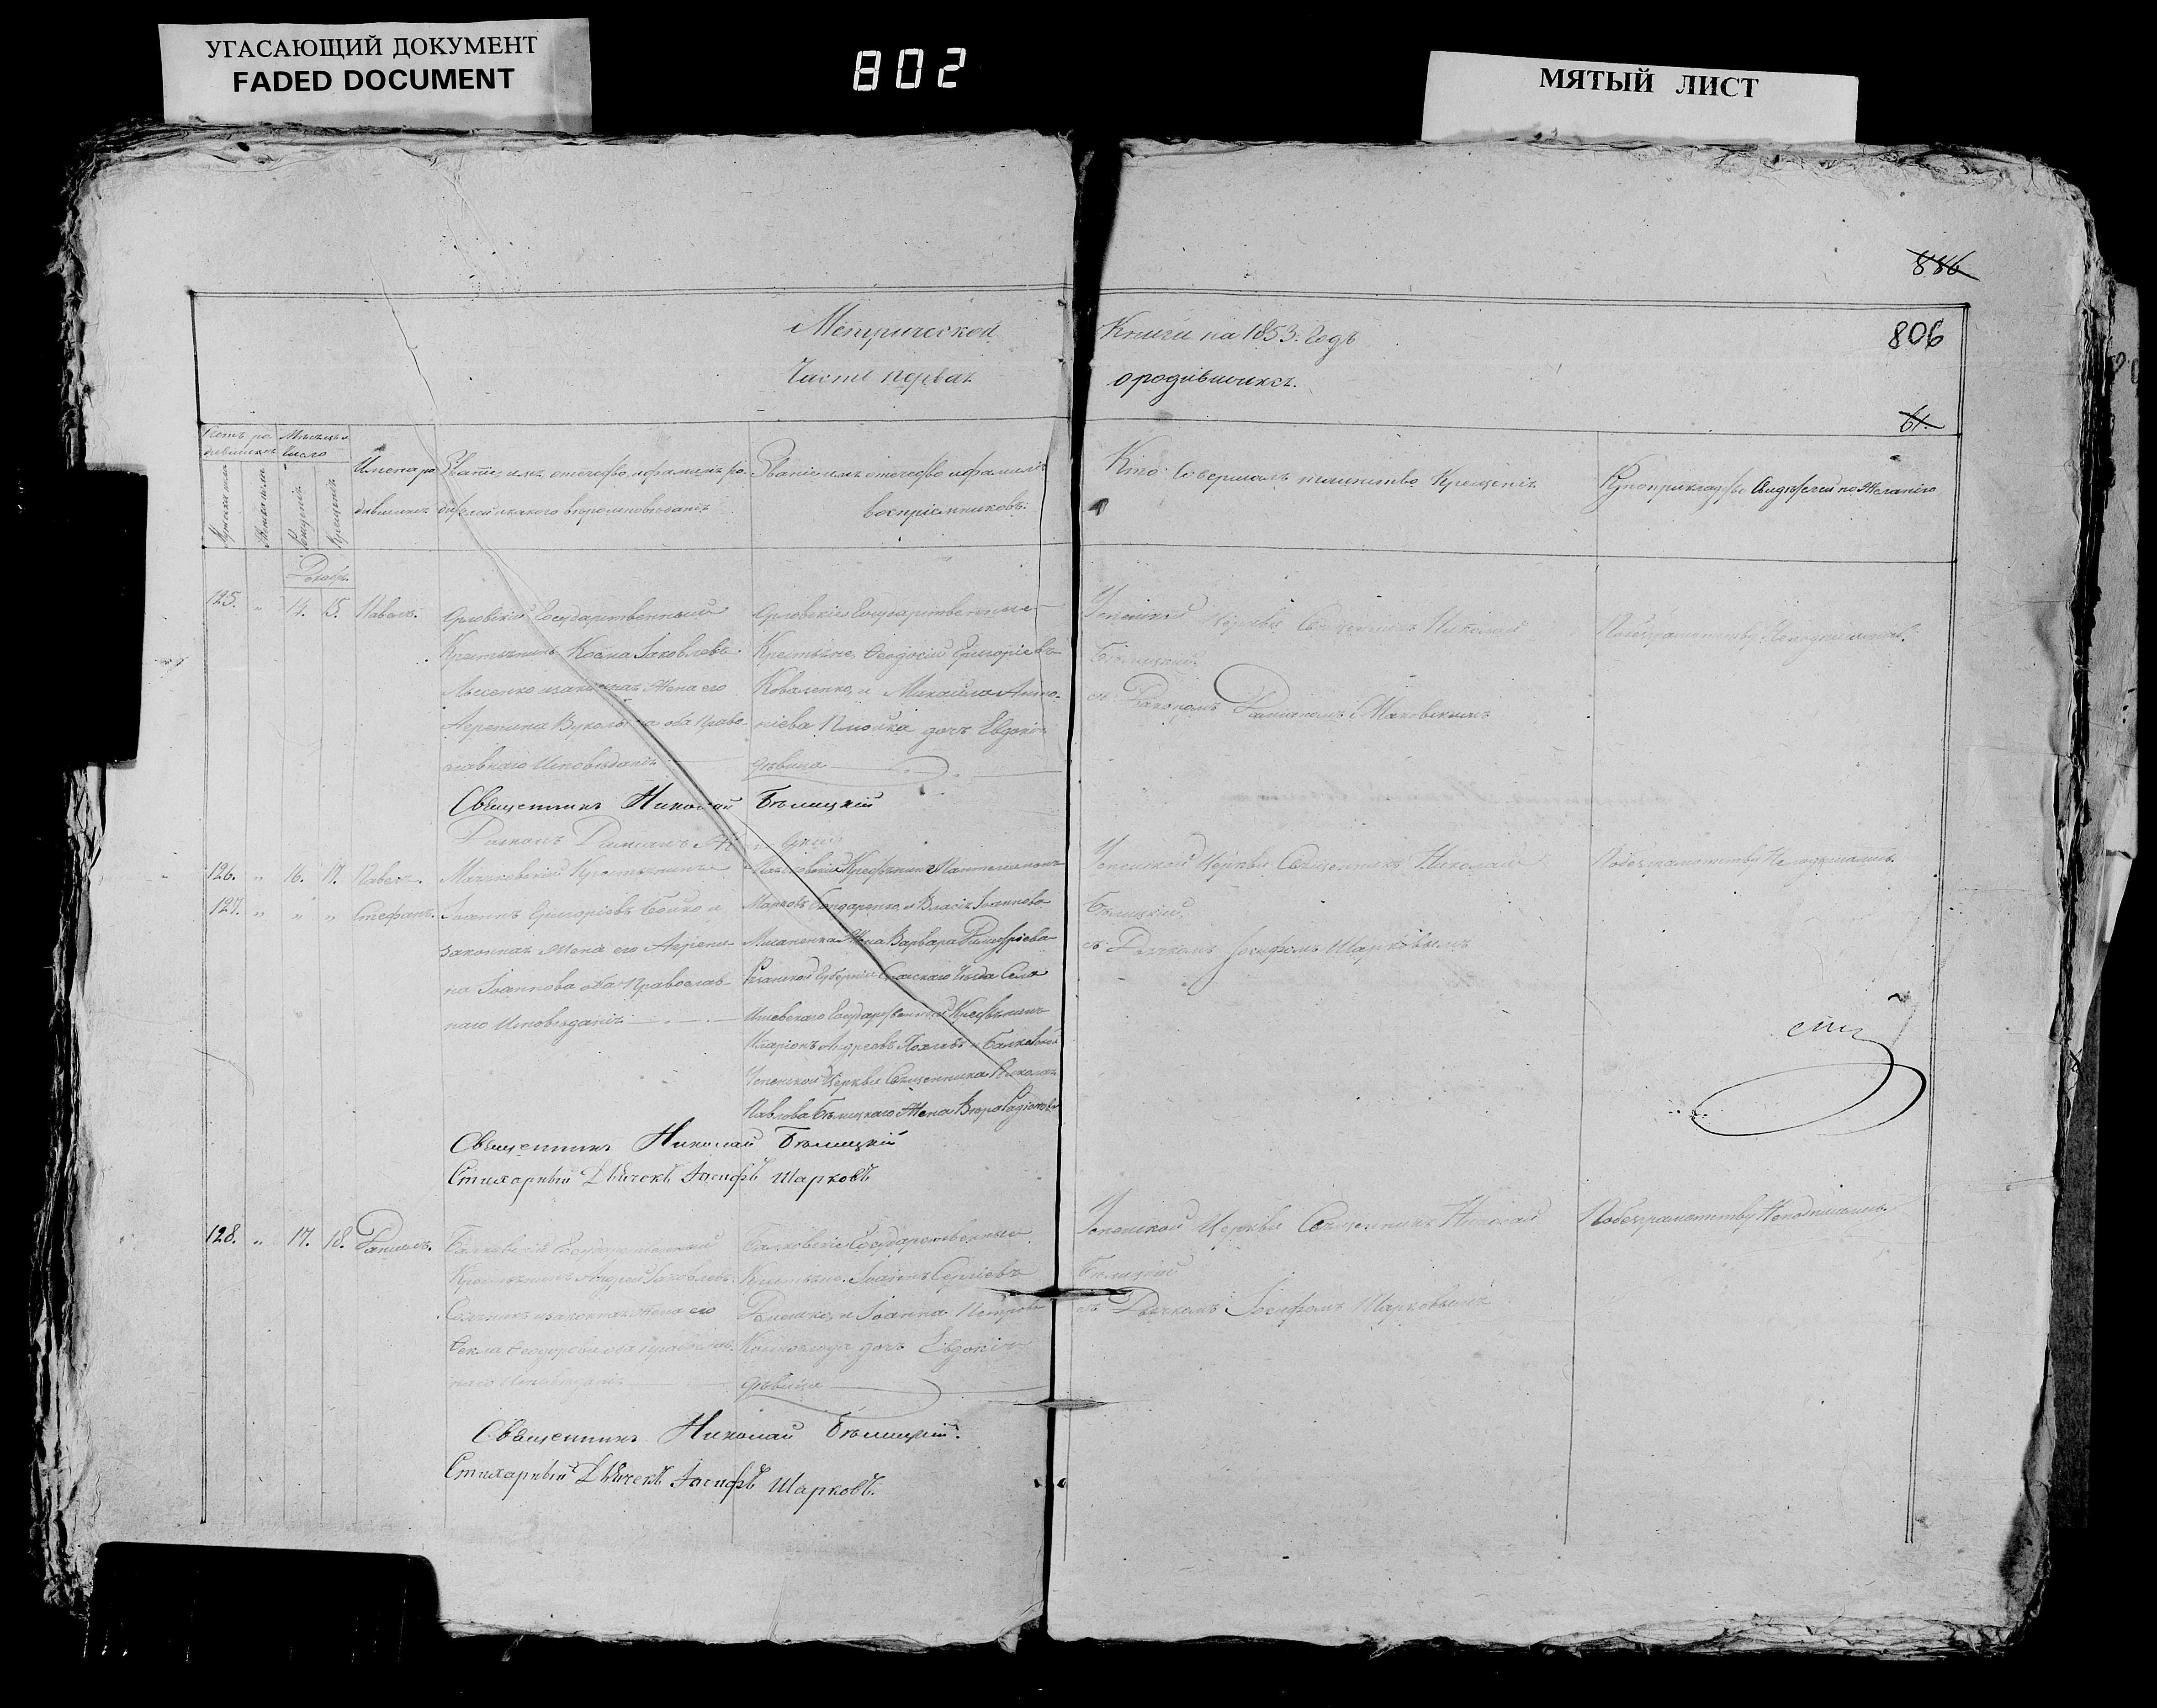 УГАСАЮЩИЙ ДОКУМЕНТ
FADED DOCUMENT
802
МЯТЫЙ ЛИСТ
886
806
Метрической
Книги на 1853. Годъ
Часть первая
о родившихся.
61.
Мѣсяцъ и
число
Имена ро
дившихся
Званіе, имя, отечество, и фамилія ро-
дителей и какого вѣроисповѣданія
Званіе имя отечество и фамилія
воспріемниковъ.
Кто совершалъ таинство Крещенія
Рукоприкладство свидѣтелей по желанію
Декабрь
125. " 14. 15. Павелъ.
Орловскій Государственный
Крестьянинъ Косма Іаковлевъ
Лысенко и законная жена его
Агрепина Вукол на оба Право-
славнаго Исповѣданія
Орловскіе Государственные
Крестьяне, Ѳеодосій Григоріевъ
Коваленко, и Михаила Анто-
ніева дочь Евдокія
дѣвица
Успенской Церкви Священникъ Николай
Бѣлицкій.
съ Діакономъ Даміаномъ
По безграмотству Неподписались.
Священникъ Николай Бѣлицкій
Діаконъ Даміанъ
126. " 16. 17. Павелъ.
127. " " " Стефанъ.
Крестьянинъ
Іоаннъ Григоріевъ Бойко и
законная жена его Агрепи-
на Іоаннова оба Православ-
наго Исповѣданія
Крестьянинъ Пантелеимонъ
Марковъ Бондаренко, и Власія Іоаннова
жена Варвара Димитріева
Рязанской Губерніи Спасскаго Уѣзда Села
Ижевскаго Государственный Крестьянинъ
Иларіонъ Андреевъ
Успенской Церкви Священника Николая
Павлова Бѣлицкаго жена Вѣра Радіонова
Успенской Церкви Священникъ Николай
Бѣлицкій,
съ Дьячкомъ Іосифомъ Шарковымъ
По безграмотству Неподписались.
Священникъ Николай Бѣлицкій
Стихарный Дьячекъ Іосифъ Шарковъ
128. " 17. 18. Даніилъ.
Балковскій Государственный
Крестьянинъ Андрей Іаковлевъ
и законная жена его
Ѳекла Ѳеодорова оба православ-
наго Исповѣданія
Балковскіе Государственные
Крестьяне. Іоаннъ Сергіевъ
и Іоанна Петрова
дочь Евдокія
дѣвица
Успенской Церкви Священникъ Николай
Бѣлицкій
съ Дьячкомъ Іосифомъ Шарковымъ
По безграмотству Неподписались.
Священникъ Николай Бѣлицкій.
Стихарный Дьячекъ Іосифъ Шарковъ.